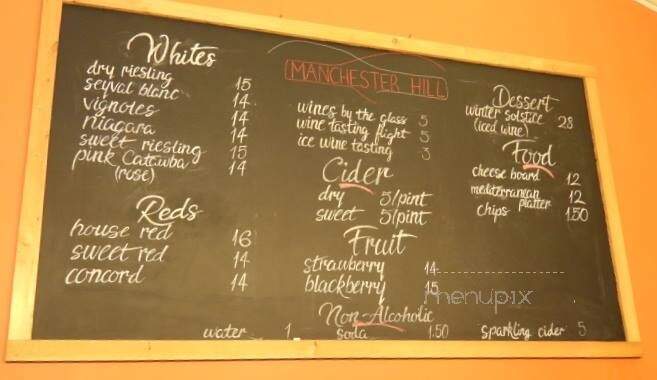 Whites
dry riesling 15
seyval blanc 14
vignoles 14
niagara 14
sweet riesling 15
pink Catawba 14
(rose)
Reds
house red 16
sweet red 14
concord 14
MANCHESTER HILL
wines by the glass 5
wine tasting flight 5
ice wine tasting 3
Cider
dry 5/pint
sweet 5/pint
Fruit
strawberry 14
blackberry 15
Dessert
winter solstice 28
(iced wine)
Food
cheese board 12
mediterranean 12
platter
chips 1.50
menupix
Non-Alcoholic
water 1 soda 1.50 sparkling cider 5